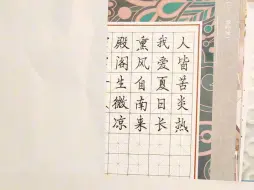 人皆苦炎热
我爱夏日长
熏风自南来
殿阁生微凉